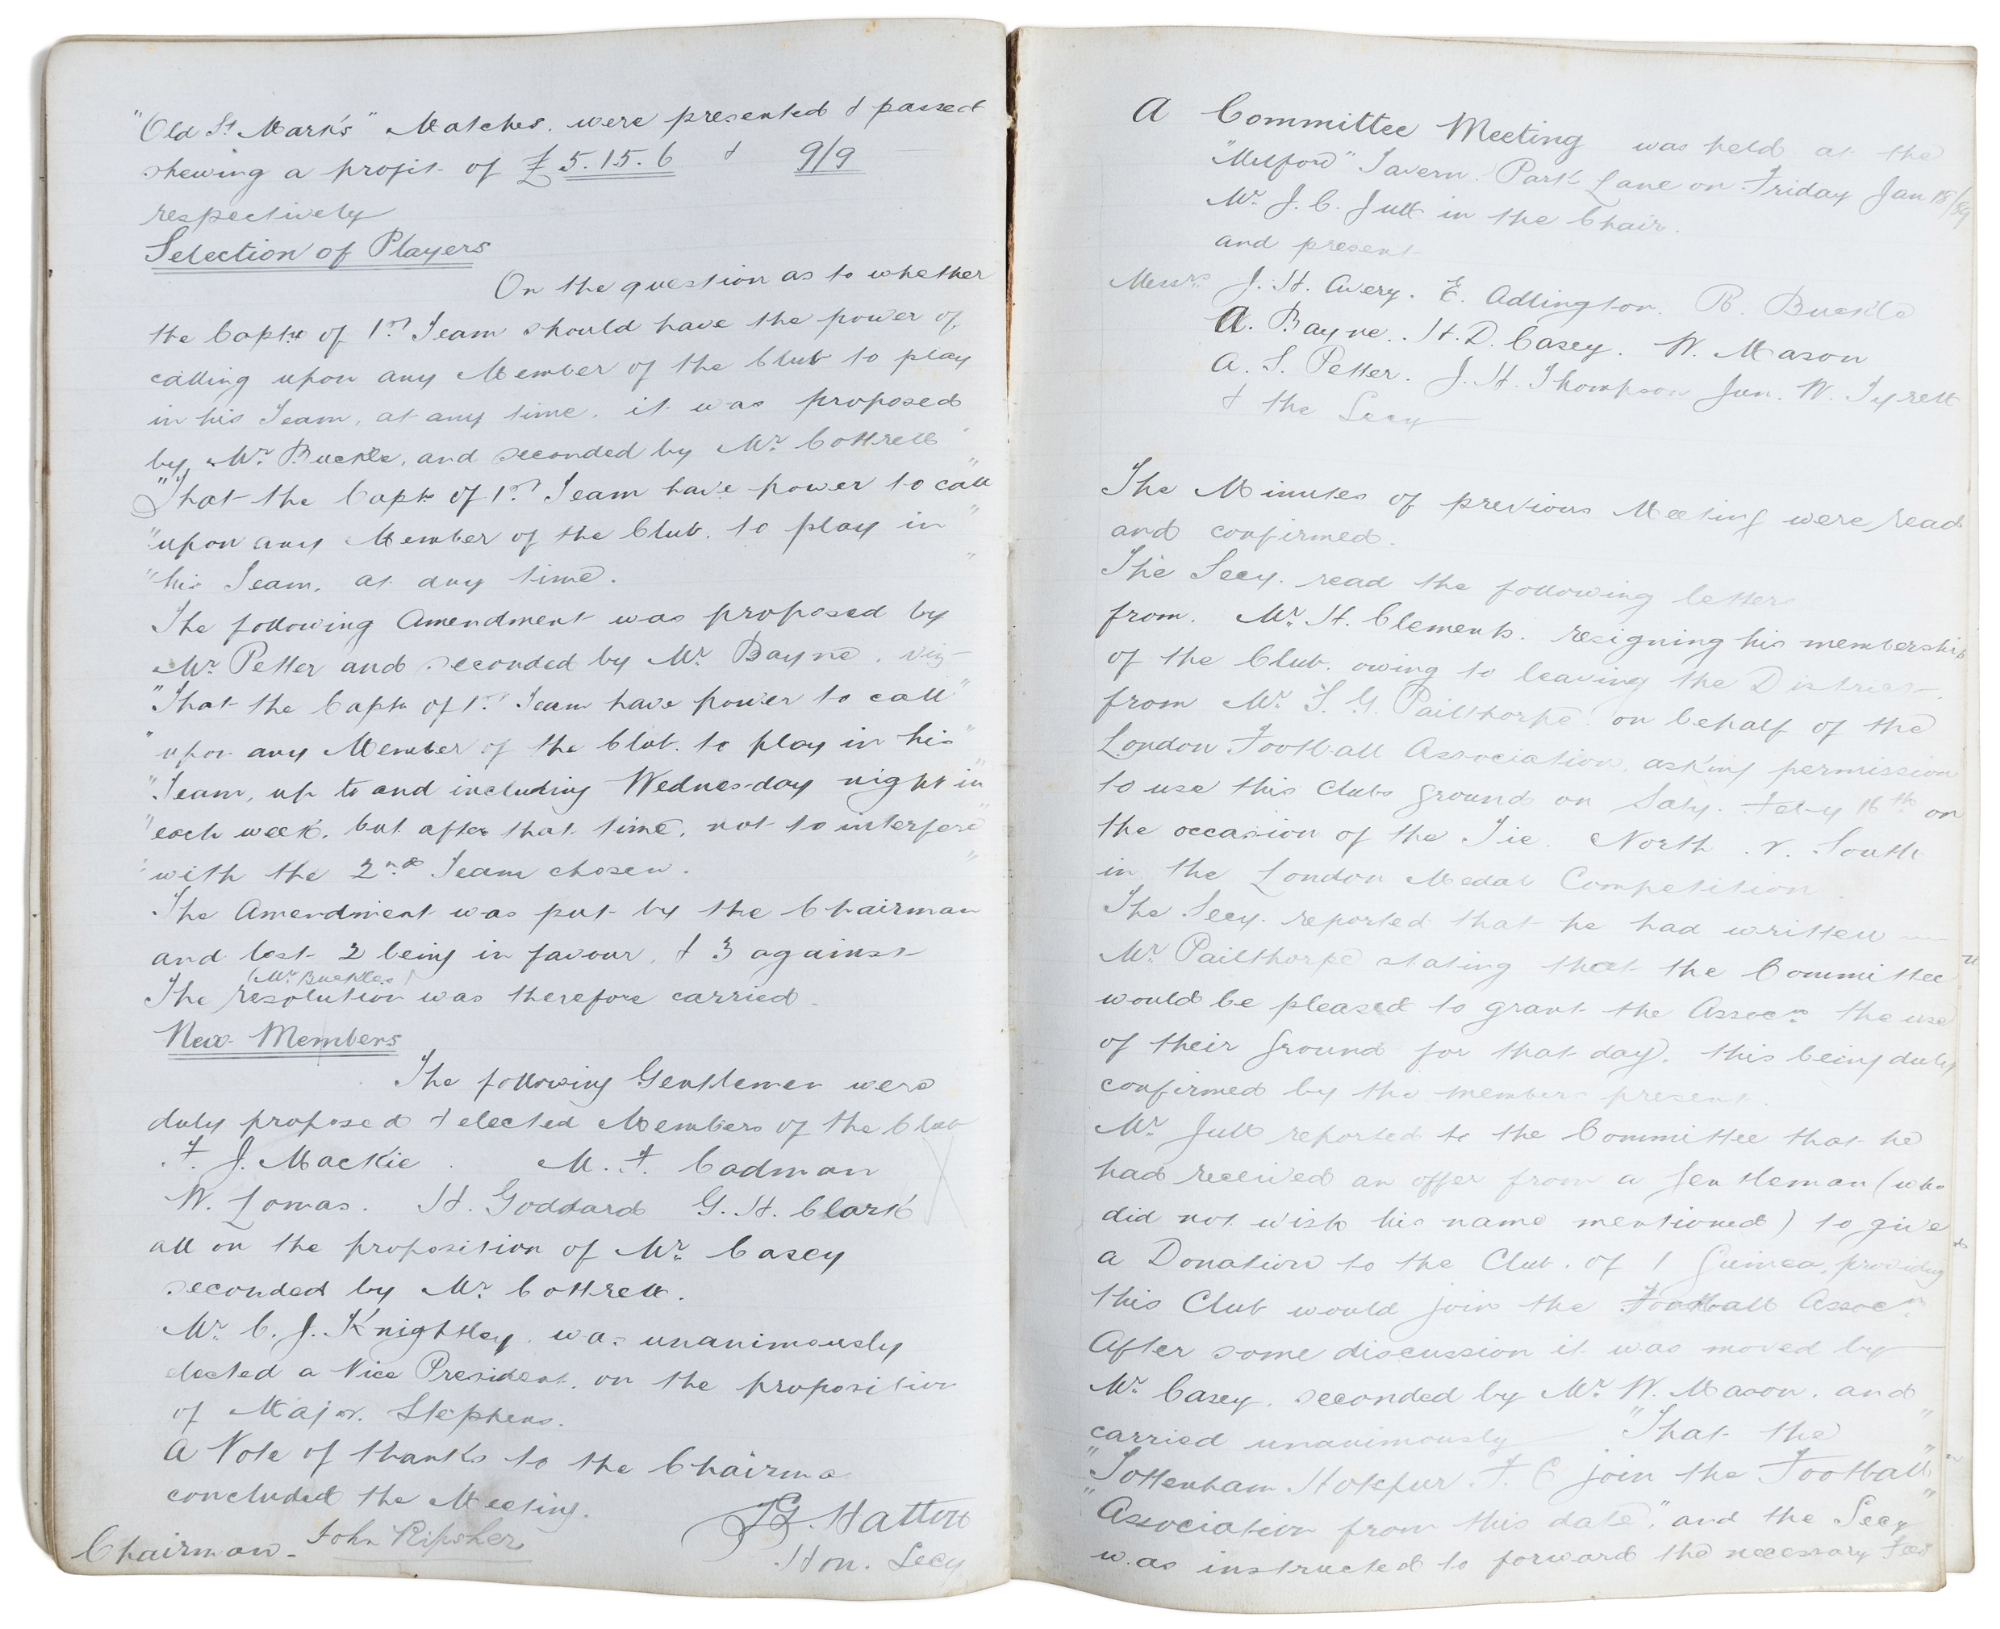 "Old St Mark's" Matches. were presented & passed
shewing a profit of £5.15.6 & 9/9
respectively
Selection of Players
On the question as to whether
the Captn of 1st Team should have the power of
calling upon any Member of the Club to play
in his Team, at any time. it was proposed
by Mr Buckle, and seconded by Mr Cottrell
"That the Captn of 1st Team have power to call"
"upon any Member of the Club. to play in"
"his Team. at any time."
The following Amendment was proposed by
Mr Petter and seconded by Mr Bayne. viz
"That the Captn of 1st Team have power to call"
"upon any Member of the Club. to play in his"
"Team, up to and including Wednesday night in"
"each week. but after that time. not to interfere"
"with the 2nd Team chosen."
The Amendment was put by the Chairman
and lost 2 being in favour, & 3 against
(Mr Buckles)
The resolution was therefore carried.
New Members
The following Gentlemen were
duly proposed & elected Members of the Club
F. J. Mackie. M. F. Cadman
W. Lomas. H. Goddard G. H. Clark
all on the proposition of Mr Casey
seconded by Mr Cottrell.
Mr C. J. Knightley. was unanimously
elected a Vice President. on the proposition
of Major. Stephens.
A Vote of thanks to the Chairma
concluded the Meeting.
Chairman - John Ripsher
Hatton
Hon. Secy
A Committee Meeting was held at the
"Milford" Tavern. Park Lane on Friday Jan 18/89
Mr J. C. Jull in the Chair.
and present
Messrs J. H. Avery. E. Adlington. R. Buckle
A. Bayne. H. D. Casey. W. Mason
A. S. Petter. J. H. Thompson Jun. W. Tyrell
& the Secy
The Minutes of previous Meeting were read
and confirmed.
The Secy. read the following letters
from. Mr H. Clements. resigning his membership
of the Club. owing to leaving the District.
from Mr T. G. Pailthorpe on behalf of the
London Football Association, asking permission
to use this Clubs ground on Saty. Feby 16th on
the occasion of the Tie. North. v. South
in the London Medal Competition.
The Secy. reported that he had written
Mr Pailthorpe stating that the Committee
would be pleased to grant the Assocn the use
of their ground for that day. this being duly
confirmed by the members present.
Mr Jull reported to the Committee that he
had received an offer from a Gentleman (who
did not wish his name mentioned) to give
a Donation to the Club. of 1 Guinea. providing
this Club would join the Football Assocn
After some discussion it was moved by
Mr Casey. seconded by Mr W. Mason. and
carried unanimously "That the"
"Tottenham Hotspur. F. C join the Football"
"Association from this date", and the Secy
was instructed to forward the necessary Fees